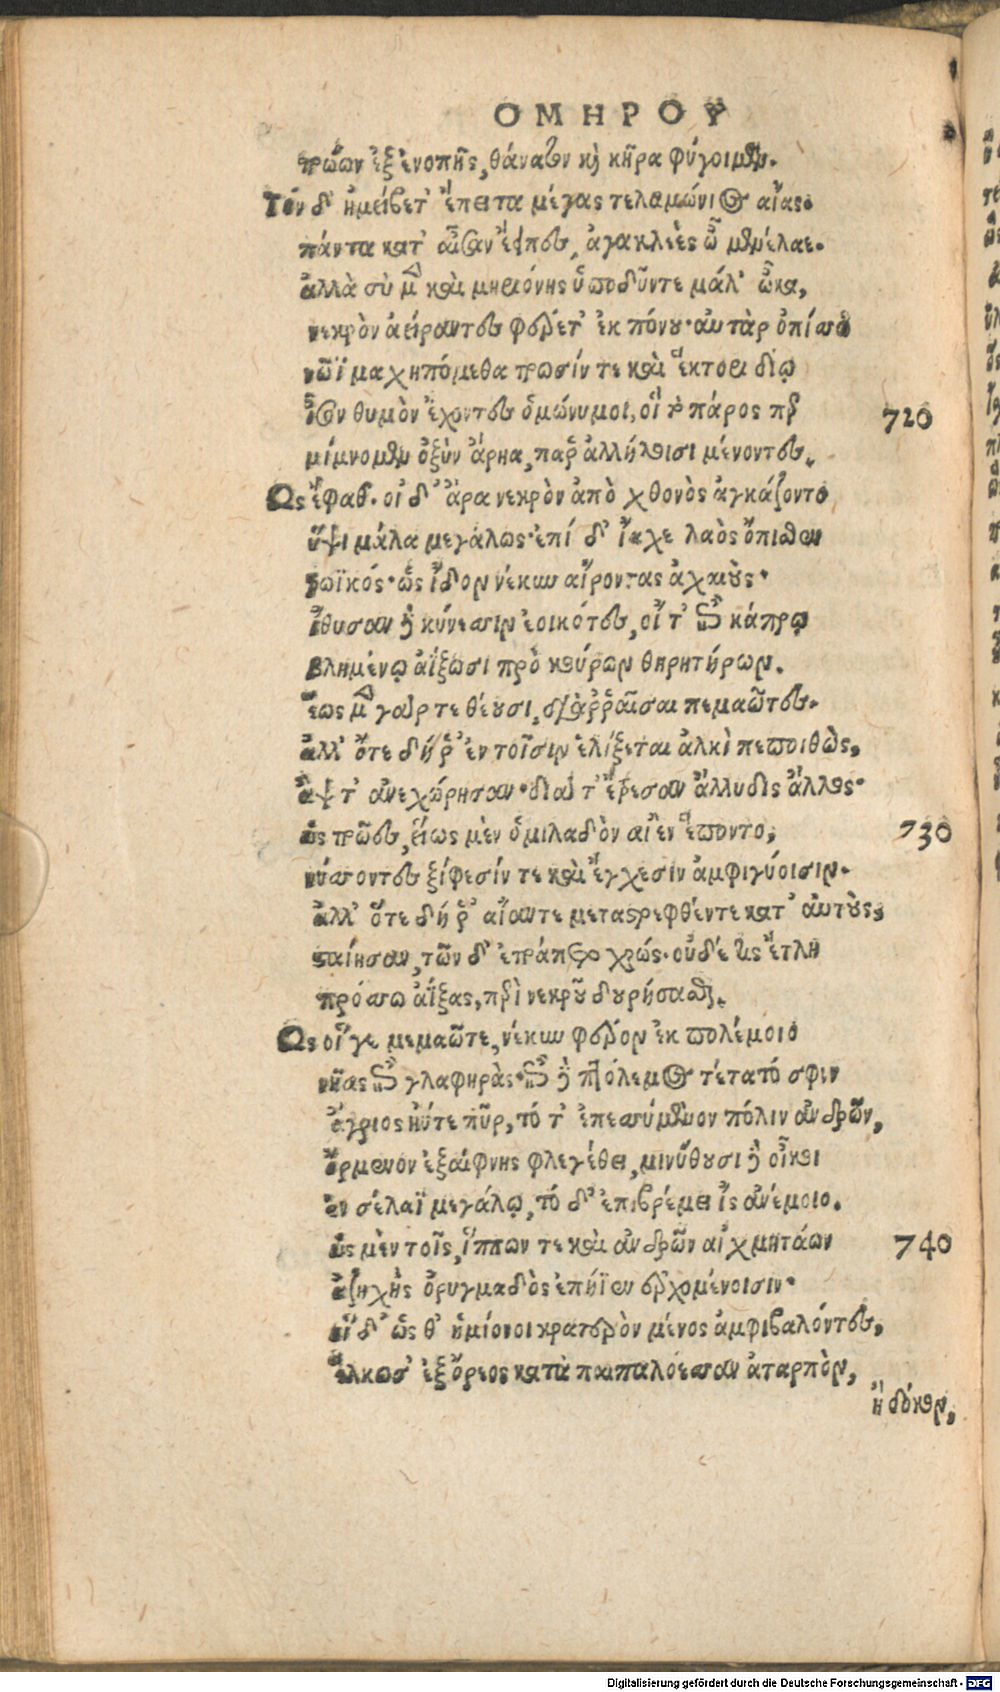 ΟΜΗΡΟΥ
τρώων ἐξ ἐνοπῆς, θάνατον καὶ κῆρα φύγοιμεν.
Τὸν δ' ἠμείβετ' ἔπειτα μέγας τελαμώνιος αἴας.
πάντα κατ' αἶσαν ἔειπες, ἀγακλεὲς ὦ μενέλαε.
ἀλλὰ σὺ μὲν καὶ μηριόνης ὑποδῦντε μάλ' ὦκα,
νεκρὸν ἀείραντες φέρετ' ἐκ πόνου· αὐτὰρ ὀπίσσω
νῶϊ μαχησόμεθα τρωσίν τε καὶ ἕκτορι δίῳ
ἶσον θυμὸν ἔχοντες ὁμώνυμοι, οἳ τὸ πάρος περ 720
μίμνομεν ὀξὺν ἄρηα, παρ' ἀλλήλοισι μένοντες.
Ὣς ἔφαθ'. οἱ δ' ἄρα νεκρὸν ἀπὸ χθονὸς ἀγκάζοντο
ὕψι μάλα μεγάλως· ἐπί δ' ἴαχε λαὸς ὄπισθεν
τρωϊκός· ὡς ἴδον νέκυν αἴροντας ἀχαιούς·
ἴθυσαν δὲ κύνεσσιν ἐοικότες, οἵ τ' ἐπὶ κάπρῳ
βλημένῳ ἀΐξωσι πρὸ κούρων θηρητήρων.
ἕως μὲν γάρ τε θέουσι, διαρραῖσαι μεμαῶτες.
ἀλλ' ὅτε δή ῥ' ἐν τοῖσιν ἑλίξεται ἀλκὶ πεποιθὼς,
ἄψ τ' ἀνεχώρησαν· διά τ' ἔτρεσαν ἄλλυδις ἄλλος·
ὣς τρῶες, εἵως μὲν ὁμιλαδὸν αἰὲν ἕποντο, 730
νύσσοντες ξίφεσίν τε καὶ ἔγχεσιν ἀμφιγύοισιν.
ἀλλ' ὅτε δή ῥ' αἴαντε μεταστρεφθέντε κατ' αὐτοὺς,
σταίησαν, τῶν δ' ἐτράπετο χρώς· οὐδέ τις ἔτλη
πρόσσω ἀΐξας, περὶ νεκροῦ δηρήσασθαι.
Ὣς οἵγε μεμαῶτε, νέκυν φέρον ἐκ πολέμοιο
νῆας ἐπὶ γλαφηρὰς· ἐπὶ δὲ πτόλεμος τέτατό σφιν
ἄγριος ἠΰτε πῦρ, τό τ' ἐπεσσύμενον πόλιν ἀνδρῶν,
ὄρμενον ἐξαίφνης φλεγέθει, μινύθουσι δὲ οἶκοι
ἐν σέλαϊ μεγάλῳ, τό δ' ἐπιβρέμει ἲς ἀνέμοιο.
ὣς μὲν τοῖς, ἵππων τε καὶ ἀνδρῶν αἰχμητάων 740
ἀζηχὴς ὀρυγμαδὸς ἐπήϊεν ἐρχομένοισιν·
οἵ δ' ὥς θ' ἡμίονοι κρατερὸν μένος ἀμφιβαλόντες,
ἕλκωσ' ἐξ ὄρεος κατὰ παιπαλόεσσαν ἀταρπὸν,
ἢ δόκον,
Digitalisierung gefördert durch die Deutsche Forschungsgemeinschaft - DFG